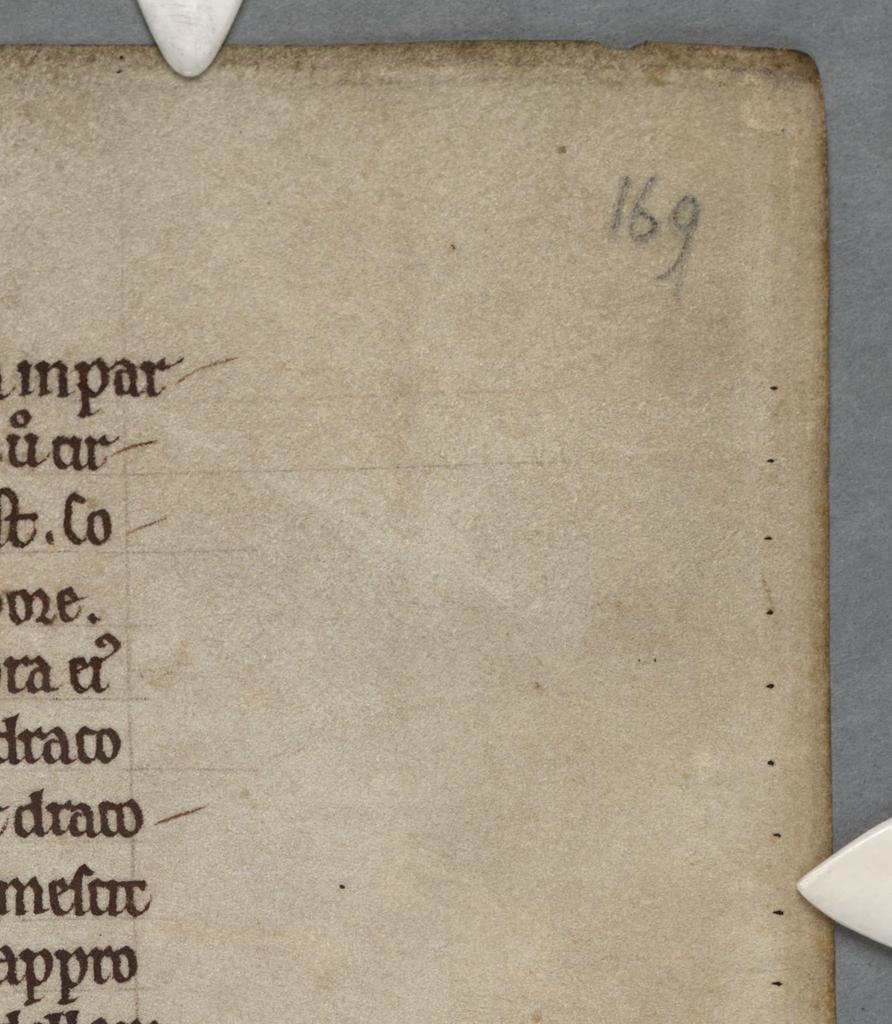 169
inpar
ů cir
st. Co
ore.
ra ei⁹
draco
draco
mescit
appro